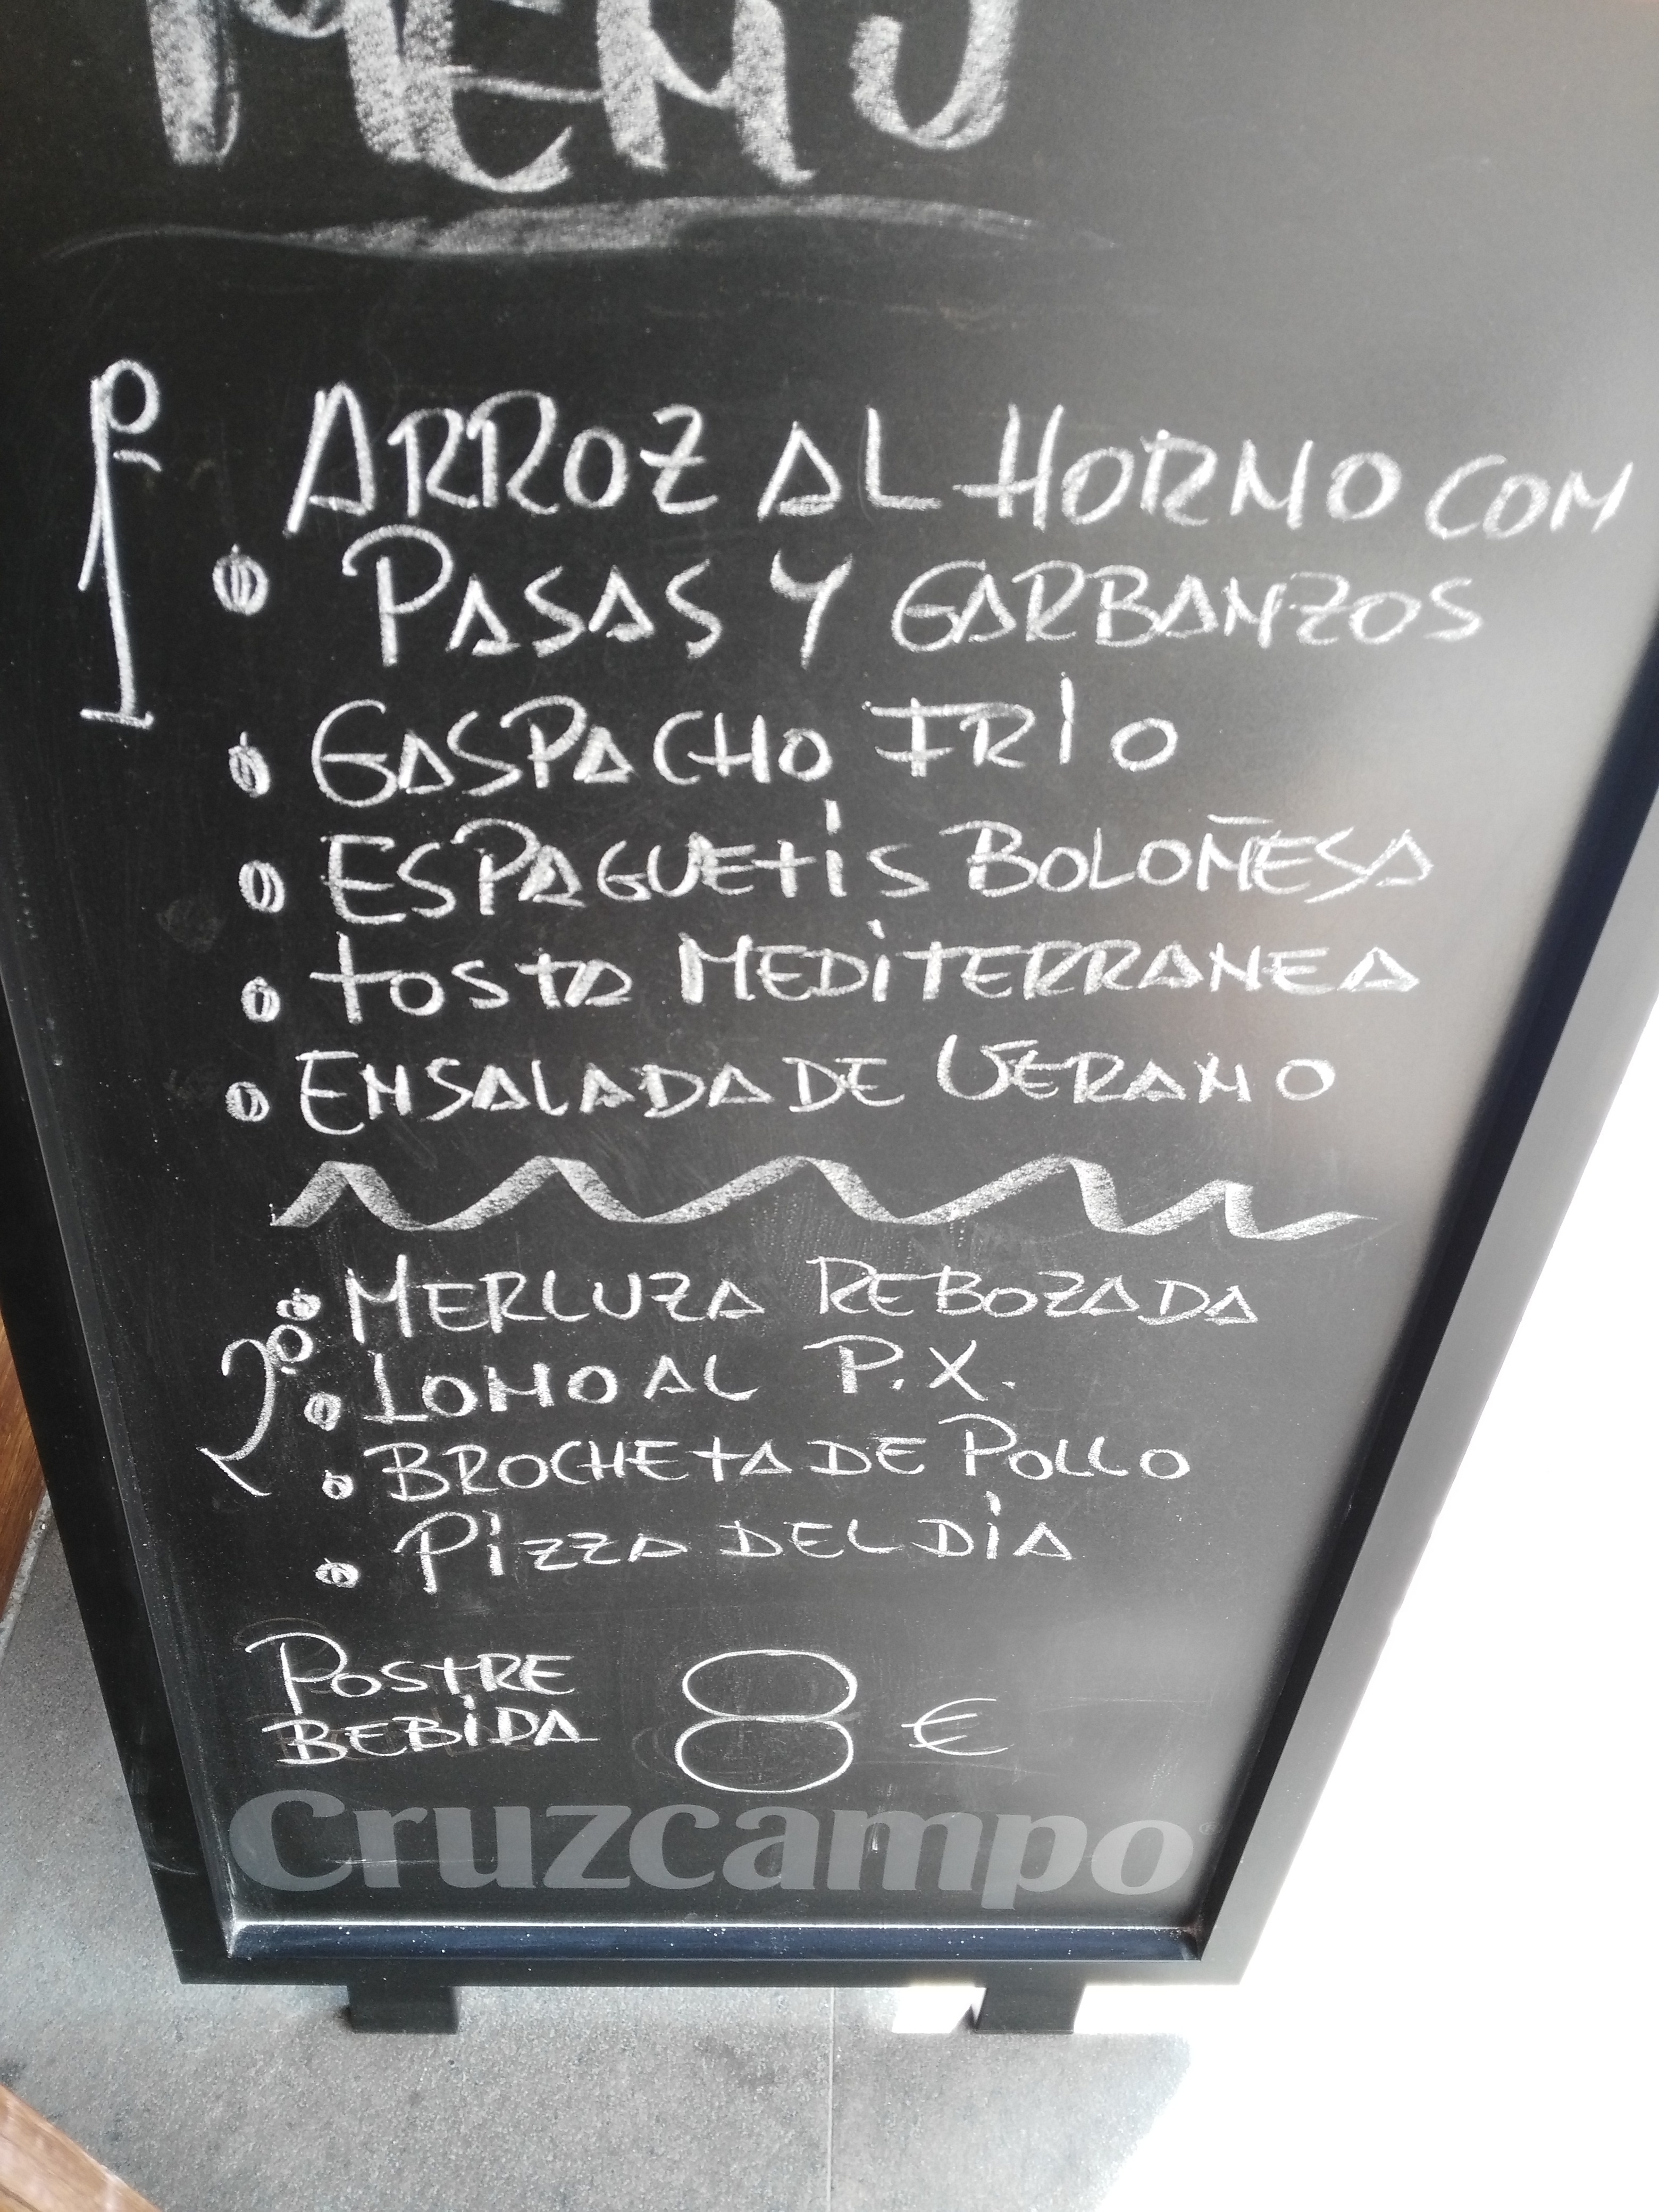 MENÚ
1º
ARROZ AL HORNO CON
PASAS Y GARBANZOS
GASPACHO FRÍO
ESPAGUETIS BOLOÑESA
TOSTA MEDITERRANEA
ENSALADA DE VERANO
2º
MERLUZA REBOZADA
LOMO AL P.X.
BROCHETA DE POLLO
PIZZA DEL DÍA
POSTRE
BEBIDA 8 €
Cruzcampo